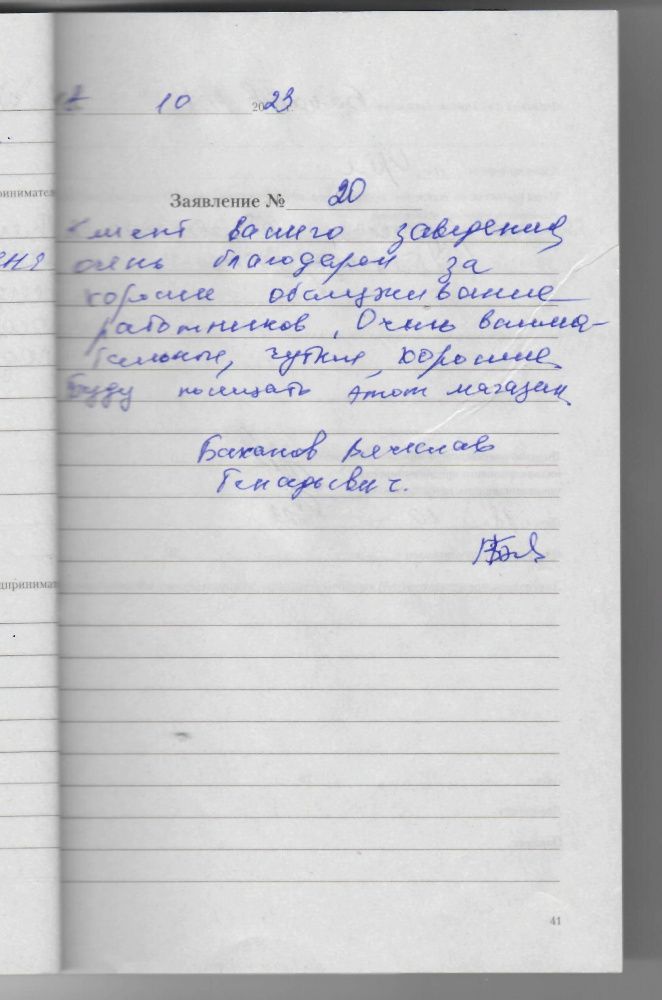 10 2023 г.
Заявление № 20
Клиент вашего заведения
очень благодарен за
хорошее обслуживание
работников, Очень внима-
тельные, чуткие, хорошие
Буду посещать этот магазин
Баханов Вячеслав
Генадьевич.
41